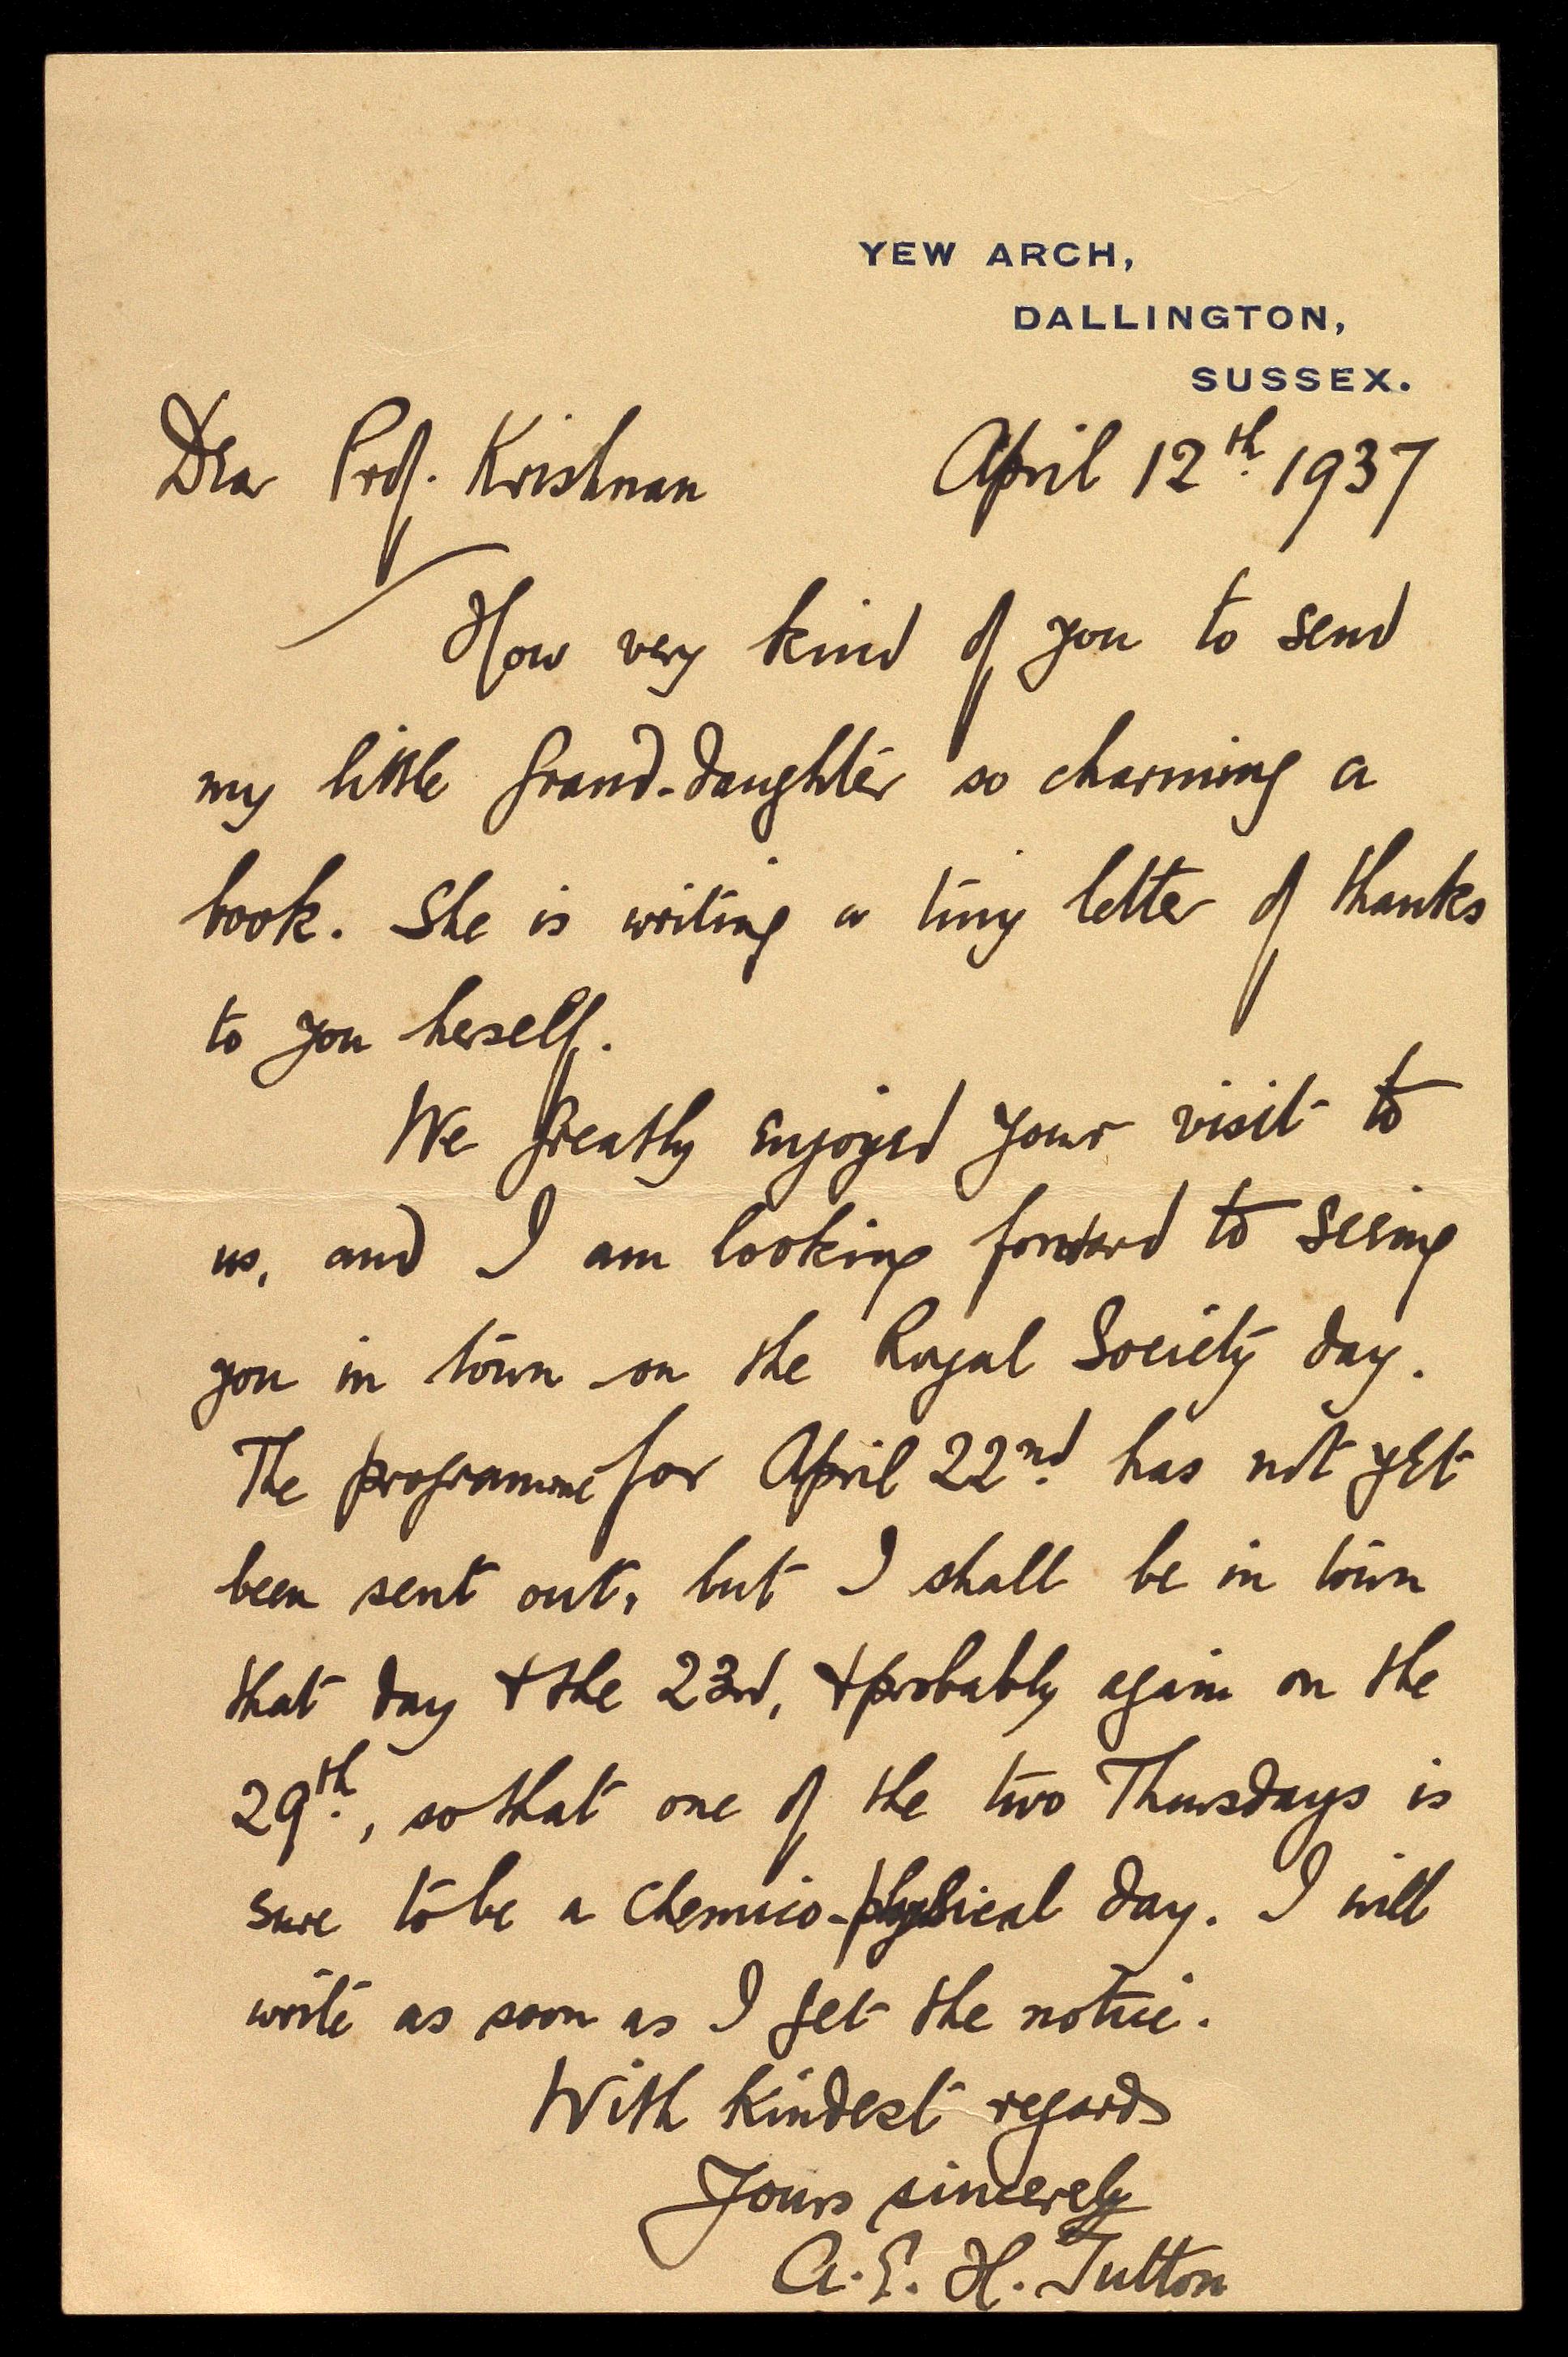 YEW ARCH,
DALLINGTON,
SUSSEX.
Dear Prof. Krishnan April 12th. 1937
How very kind of you to send
my little grand-daughter so charming a
book. She is writing a tiny letter of thanks
to you herself.
We greatly enjoyed your visit to
us, and I am looking forward to seeing
you in town on the Royal Society day.
The programme for April 22nd. has not yet
been sent out, but I shall be in town
that day & the 23rd, & probably again on the
29th., so that one of the two Thursdays is
sure to be a Chemico-physical day. I will
write as soon as I get the notice.
With kindest regards
Yours sincerely
A. E. H. Tutton